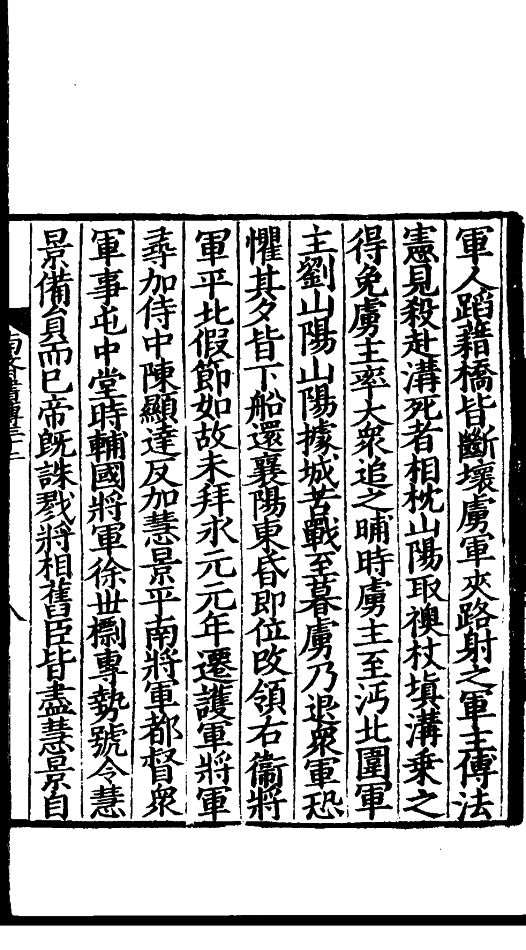 軍人蹈藉橋皆斷壞虜軍夾路射之軍主傅法
憲見殺赴溝死者相枕山陽取襖杖塡溝乗之
得免虜主率大衆追之晡時虜主至沔北圍軍
主劉山陽山陽據城苦戰至暮虜乃退衆軍恐
懼其夕皆下船還襄陽東昏即位改領右衞將
軍平北假節如故未拜永元元年遷護軍將軍
尋加侍中陳顯達反加慧景平南將軍都督衆
軍事屯中堂時輔國將軍徐世檦專勢號令慧
景備貟而已帝旣誅戮將相舊臣皆盡慧景自